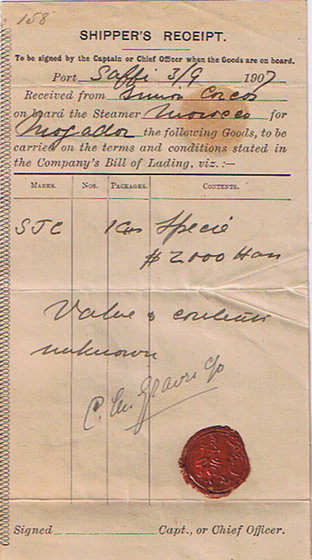 158
SHIPPER'S RECEIPT.
To be signed by the Captain or Chief Officer when the Goods are on board.
Port Saffi 3/9 1907
Received from Simon Corcos
on board the Steamer Morocco for
Mogador the following Goods, to be
carried on the terms and conditions stated in
the Company's Bill of Lading, viz.:—
MARKS. NOS. PACKAGES. CONTENTS.
SJC 1 Specie
$2000
Value & contents
unknown
Signed Capt., or Chief Officer.